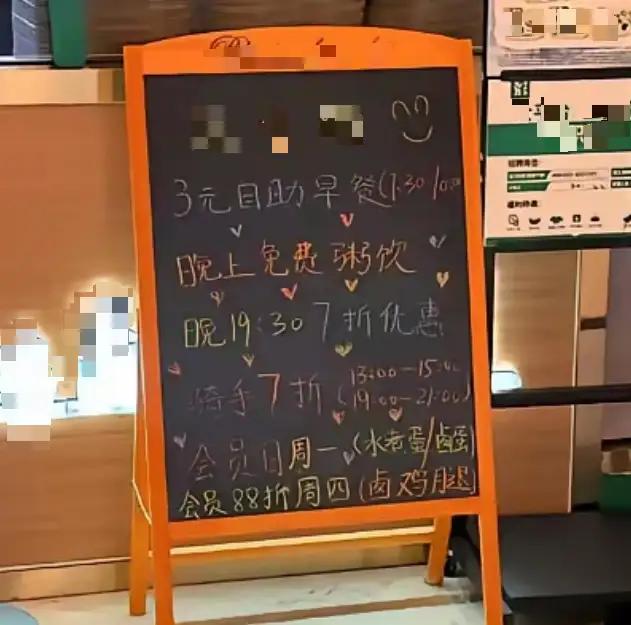 3元自助早餐(7:30 10:00
晚上免费粥饮
晚19:30 7折优惠
骑手7折(13:00—15:00
19:00—21:00)
会员日周一(水煮蛋/卤蛋)
会员88折周四(卤鸡腿)
招聘岗位:
福利待遇: